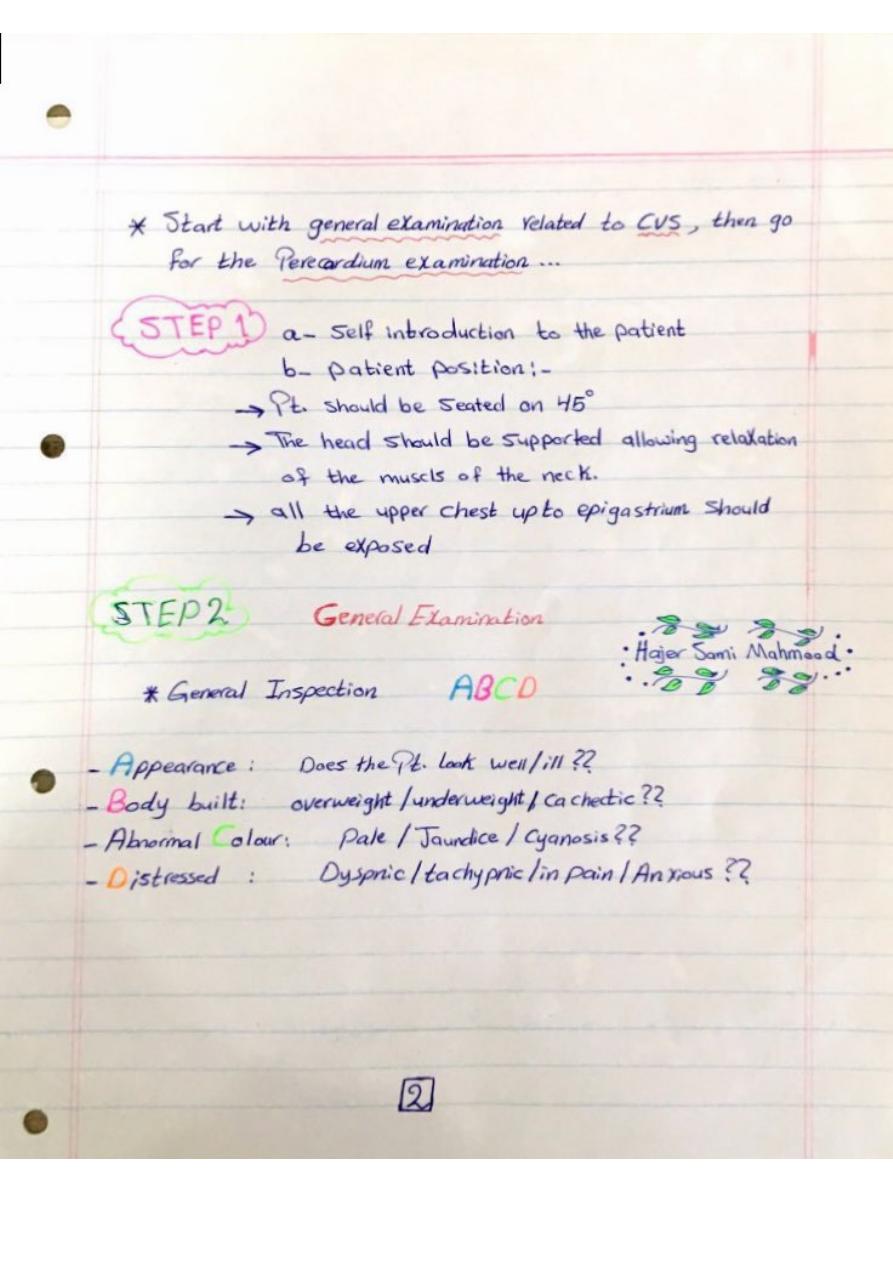 * Start with general examination related to CVS, then go
for the Perecardium examination ...
STEP 1 a- Self introduction to the patient
b- patient position:-
→ Pt. should be seated on 45°
→ The head should be supported allowing relaxation
of the muscls of the neck.
→ all the upper chest upto epigastrium should
be exposed
STEP 2 General Examination
• Hajer Sami Mahmood •
* General Inspection ABCD
- Appearance : Does the Pt. look well/ill ??
- Body built: overweight/underweight/cachectic??
- Abnormal Colour: Pale / Jaundice / Cyanosis??
- Distressed : Dyspnic/tachypnic/in pain/Anxious ??
2